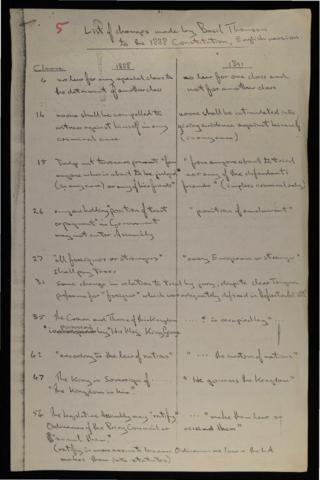 5
List of changes made by Basil Thomson
to the 1888 Constitution, English version
Clause 1888 1891
4 no law for any special class to no law for one class and
the detriment of another class not for another class
14 no one shall be compelled to no one shall be intimidated into
witness against himself in any giving evidence against himself
criminal case (in any case)
15 Judge not to have present "from "from anyone about to be tried
anyone who is about to be judged" nor any of the defendant's
(in any case) or any of his friends" friends" (implies criminal only)
26 anyone holding "position of trust "position of emolument"
or payment" in Government
may not enter Assembly
27 "all foreigners or strangers" "every European or stranger"
shall pay taxes
31 Same change in relation to trial by jury, despite clear Tongan
preference for "foreigner" which was adequately defined in
35 The Crown and Throne of this Kingdom " is occupied by"
possessed
by "His Maj. King George
42 "according to the law of nations" " .... the custom of nations"
47 The King is Sovereign of ..... "He governs the Kingdom"
"The Kingdom is his"
56 The Legislative Assembly may "ratify" .... "make them law or
Ordinances of the Privy Council or rescind them"
"annul them"
(ratify is more accurate because Ordinances are law & the LA
makes them into statutes)